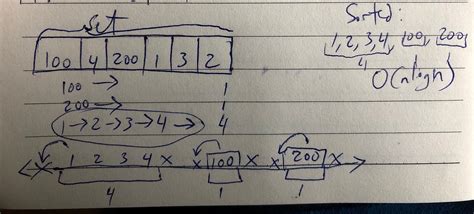 set
100 4 200 1 3 2
100 → 1
200 → 1
1→2→3→4→ 4
x 1 2 3 4 x x 100 x x 200 x
4 1 1
Sorted:
1, 2, 3, 4, 100, 200
4
O(nlogn)